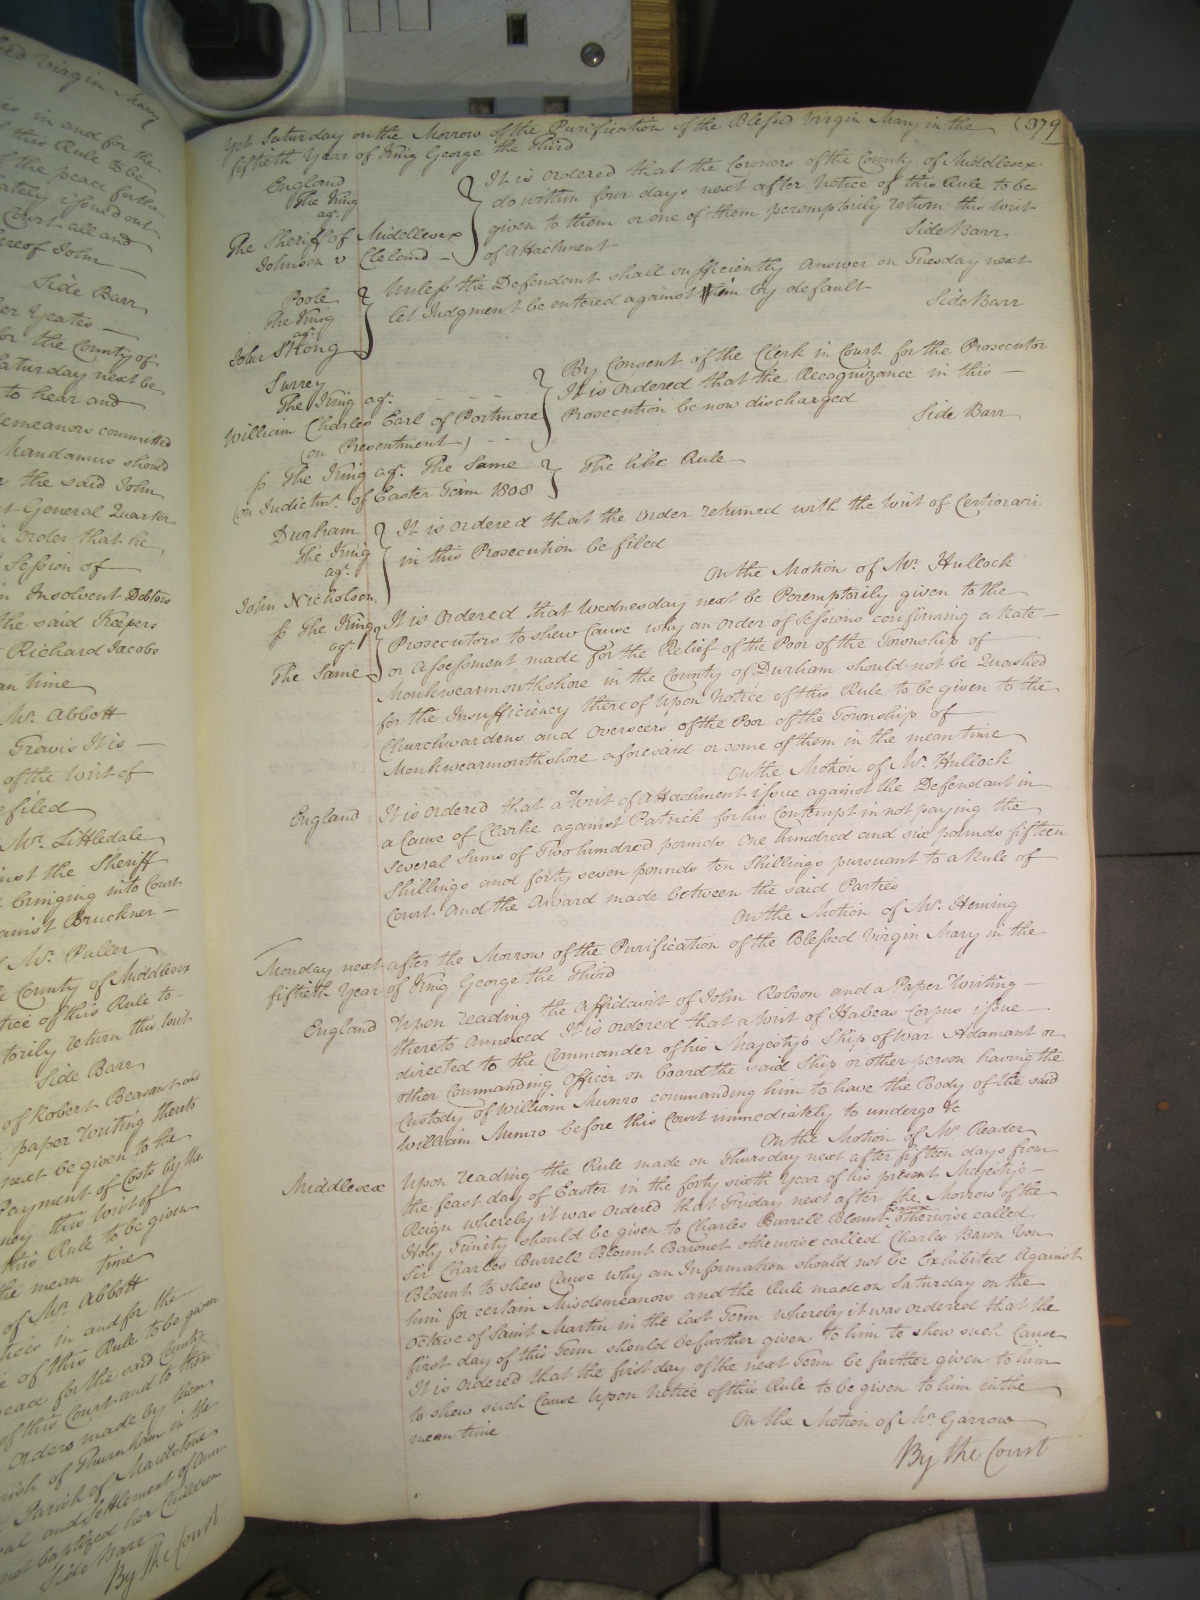 Yet Saturday on the Morrow of the Purification of the Blessed Virgin Mary in the (379
fiftieth Year of King George the Third
England
The King
agt.
The Sheriff of Middlesex
Johnson v Cleland
It is ordered that the Coroners of the County of Middlesex
do within four days next after Notice of this Rule to be
given to them or one of them peremptorily return this Writ
of Attachment
Side Barr
Poole
The King
agt.
John Strong
Unless the Defendant shall sufficiently Answer on Tuesday next
let Judgment be entered against him by default
Side Barr
Surrey
The King agt.
William Charles Earl of Portmore
(on Presentment)
By Consent of the Clerk in Court for the Prosecutor
It is ordered that the Recognizance in this
Prosecution be now discharged
Side Barr
ss The King agt. The Same
(on Indictmt. of Easter Term 1808
The like Rule
Durham
The King
agt.
John Nicholson
It is ordered that the order returned with the Writ of Certiorari
in this Prosecution be filed
On the Motion of Mr. Hullock
ss The King
agt.
The Same
It is ordered that Wednesday next be Peremptorily given to the
Prosecutors to shew Cause why an order of Sessions confirming a Rate
or Assessment made for the Relief of the Poor of the Township of
Monkwearmouthshore in the County of Durham should not be Quashed
for the Insufficiency thereof Upon Notice of this Rule to be given to the
Churchwardens and Overseers of the Poor of the Township of
Monkwearmouthshore aforesaid or some of them in the mean time
On the Motion of Mr. Hullock
England
It is ordered that a Writ of Attachment issue against the Defendant in
a Cause of Clarke against Patrick for his Contempt in not paying the
several Sums of Two hundred pounds One hundred and six pounds fifteen
Shillings and forty seven pounds ten Shillings pursuant to a Rule of
Court and the Award made between the said Parties
On the Motion of Mr. Heming
Monday next after the Morrow of the Purification of the Blessed Virgin Mary in the
fiftieth Year of King George the Third
England
Upon reading the Affidavit of John Robson and a Paper Writing
thereto annexed It is ordered that a Writ of Habeas Corpus issue
directed to the Commander of his Majestys Ship of War Adamant or
other Commanding Officer on board the said Ship or other person having the
Custody of William Munro commanding him to have the Body of the said
William Munro before this Court immediately to undergo &c
On the Motion of Mr. Reader
Middlesex
Upon reading the Rule made on Thursday next after fifteen days from
the feast day of Easter in the forty sixth Year of his present Majestys
Reign whereby it was ordered that Friday next after the Morrow of the
Holy Trinity should be given to Charles Burrell Blount Esquire otherwise called
Sir Charles Burrell Blount Baronet otherwise called Charles Baron Von
Blount to shew Cause why an Information should not be Exhibited Against
him for certain Misdemeanors and the Rule made on Saturday on the
Octave of Saint Martin in the last Term whereby it was ordered that the
first day of this Term should be further given to him to shew such Cause
It is ordered that the first day of the next Term be further given to him
to shew such Cause Upon Notice of this Rule to be given to him in the
mean time
On the Motion of Mr. Garrow
By the Court
Virgin Mary
in and for the
this Rule to be
of the peace for the
issued out
Court all and
hereof John
Side Barr
Yeates
for the County of
Saturday next be
to hear and
demeanors committed
Mandamus should
the said John
General Quarter
order that he
Session of
Insolvent Debtors
the said Keepers
Richard Jacobs
mean time
Mr. Abbott
Travis It is
of the Writ of
filed
Mr. Littledale
against the Sheriff
bringing into Court
against Bruckner
Mr. Puller
County of Middlesex
Notice of this Rule to
return this Writ
Side Barr
of Robert Beasant and
paper Writing thereto
next be given to the
Payment of Costs by the
this Writ of
this Rule to be given
the mean time
of Mr. Abbott
in and for the
of this Rule to be given
peace for the said County
of this Court and to them
Orders made by them
Parish of Thurnham in the
Parish of Maidstone
and Settlement of Ann
not baptized her Children
Side Barr
By the Court